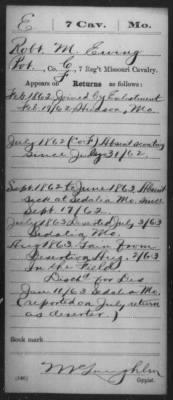 E 7 Cav. Mo.
Robt. M. Ewing
Pvt., Co. C, 7 Reg't Missouri Cavalry.
F
Appears on Returns as follows:
Feb. 1862 Joined by Enlistment
Feb. 19/62 Hudson, Mo.
July 1862 (Co F) Absent
since July 31/62
Sept 1862 to June 1863 Absent
sick at Sedalia Mo. since
Sept 17/62
July 1863 Deserted July 3/63
Sedalia Mo.
Aug 1863 Gain from
Desertion Aug. 2/63
In the Field
Disch'd for Dis
June 11/63 Sedalia Mo.
(reported on July return
as deserter)
Book mark
McLaughlin
(546) Copyist.